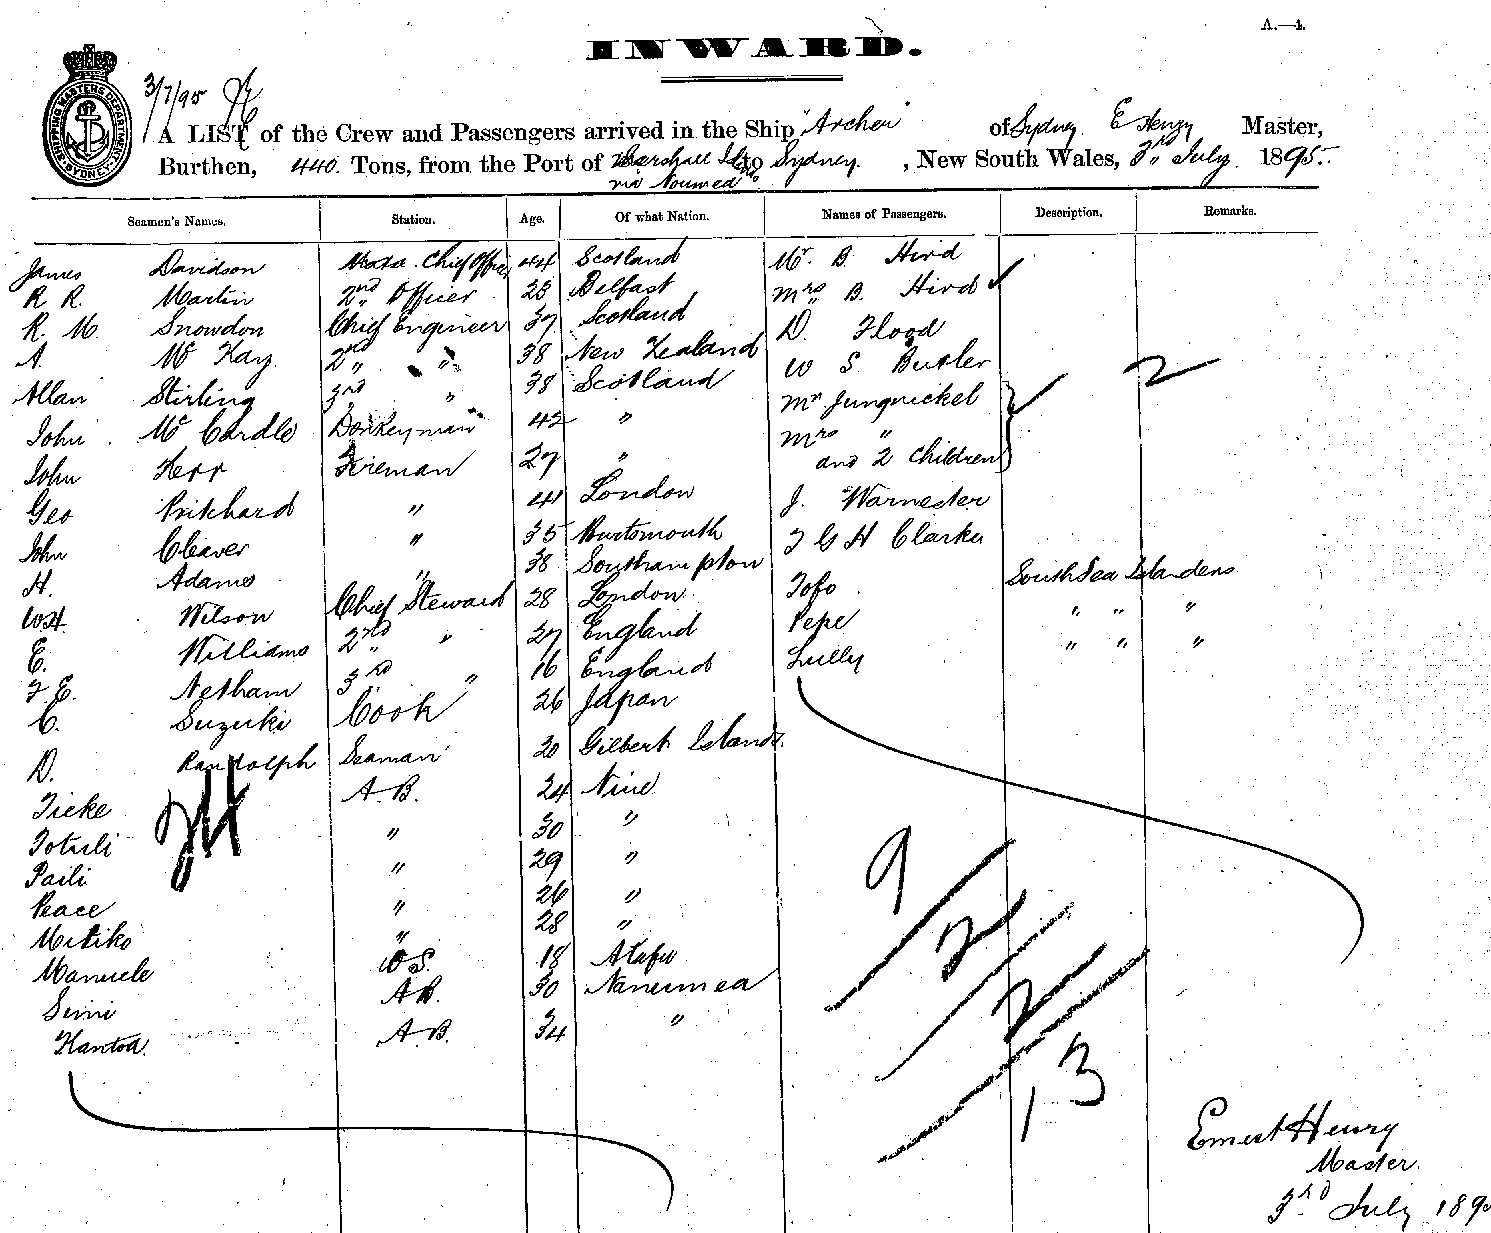 A.—4.
INWARD.
3/7/95
SHIPPING MASTERS DEPARTMENT SYDNEY
A LIST of the Crew and Passengers arrived in the Ship "Archer" of Sydney E Henry Master,
Burthen, 440 Tons, from the Port of Marshall Ids to Sydney, New South Wales, 3rd July 1895.
via Noumea
Seamen's Names. Station. Age. Of what Nation. Names of Passengers. Description. Remarks.
James Davidson Chief Officer 44 Scotland Mr. B. Hird
R. R. Martin 2nd Officer 23 Belfast Mrs B. Hird
R. M. Snowdon Chief Engineer 37 Scotland D. Flood
A. McKay 2nd " 38 New Zealand W S Butler
Allan Stirling 3rd " 38 Scotland Mr Jungnickel 2
John McCardle Donkeyman 42 " Mrs "
John Kerr Fireman 27 " and 2 Children
Geo Pritchard " 41 London J. Warnester
John Cleaver " 35 Portsmouth F G H Clarke
H. Adams " 38 Southampton
WH. Wilson Chief Steward 28 London Tofo South Sea Islanders
E. Williams 2nd " 27 England Pepe " " "
F. E. Netham 3rd " 16 England Lully " " "
C. Suzuki Cook 26 Japan
D. Randolph Seaman 20 Gilbert Islands
Ticke A.B. 24 Niue
Totuli " 30 "
Paili " 29 "
Peace " 26 "
Mitiko " 28 "
Manuele O.S. 18 Atafu
Simi A.B. 30 Nanumea
Kantoa A.B. 34 "
24
9
2
2
13
Ernest Henry
Master.
3rd July 189